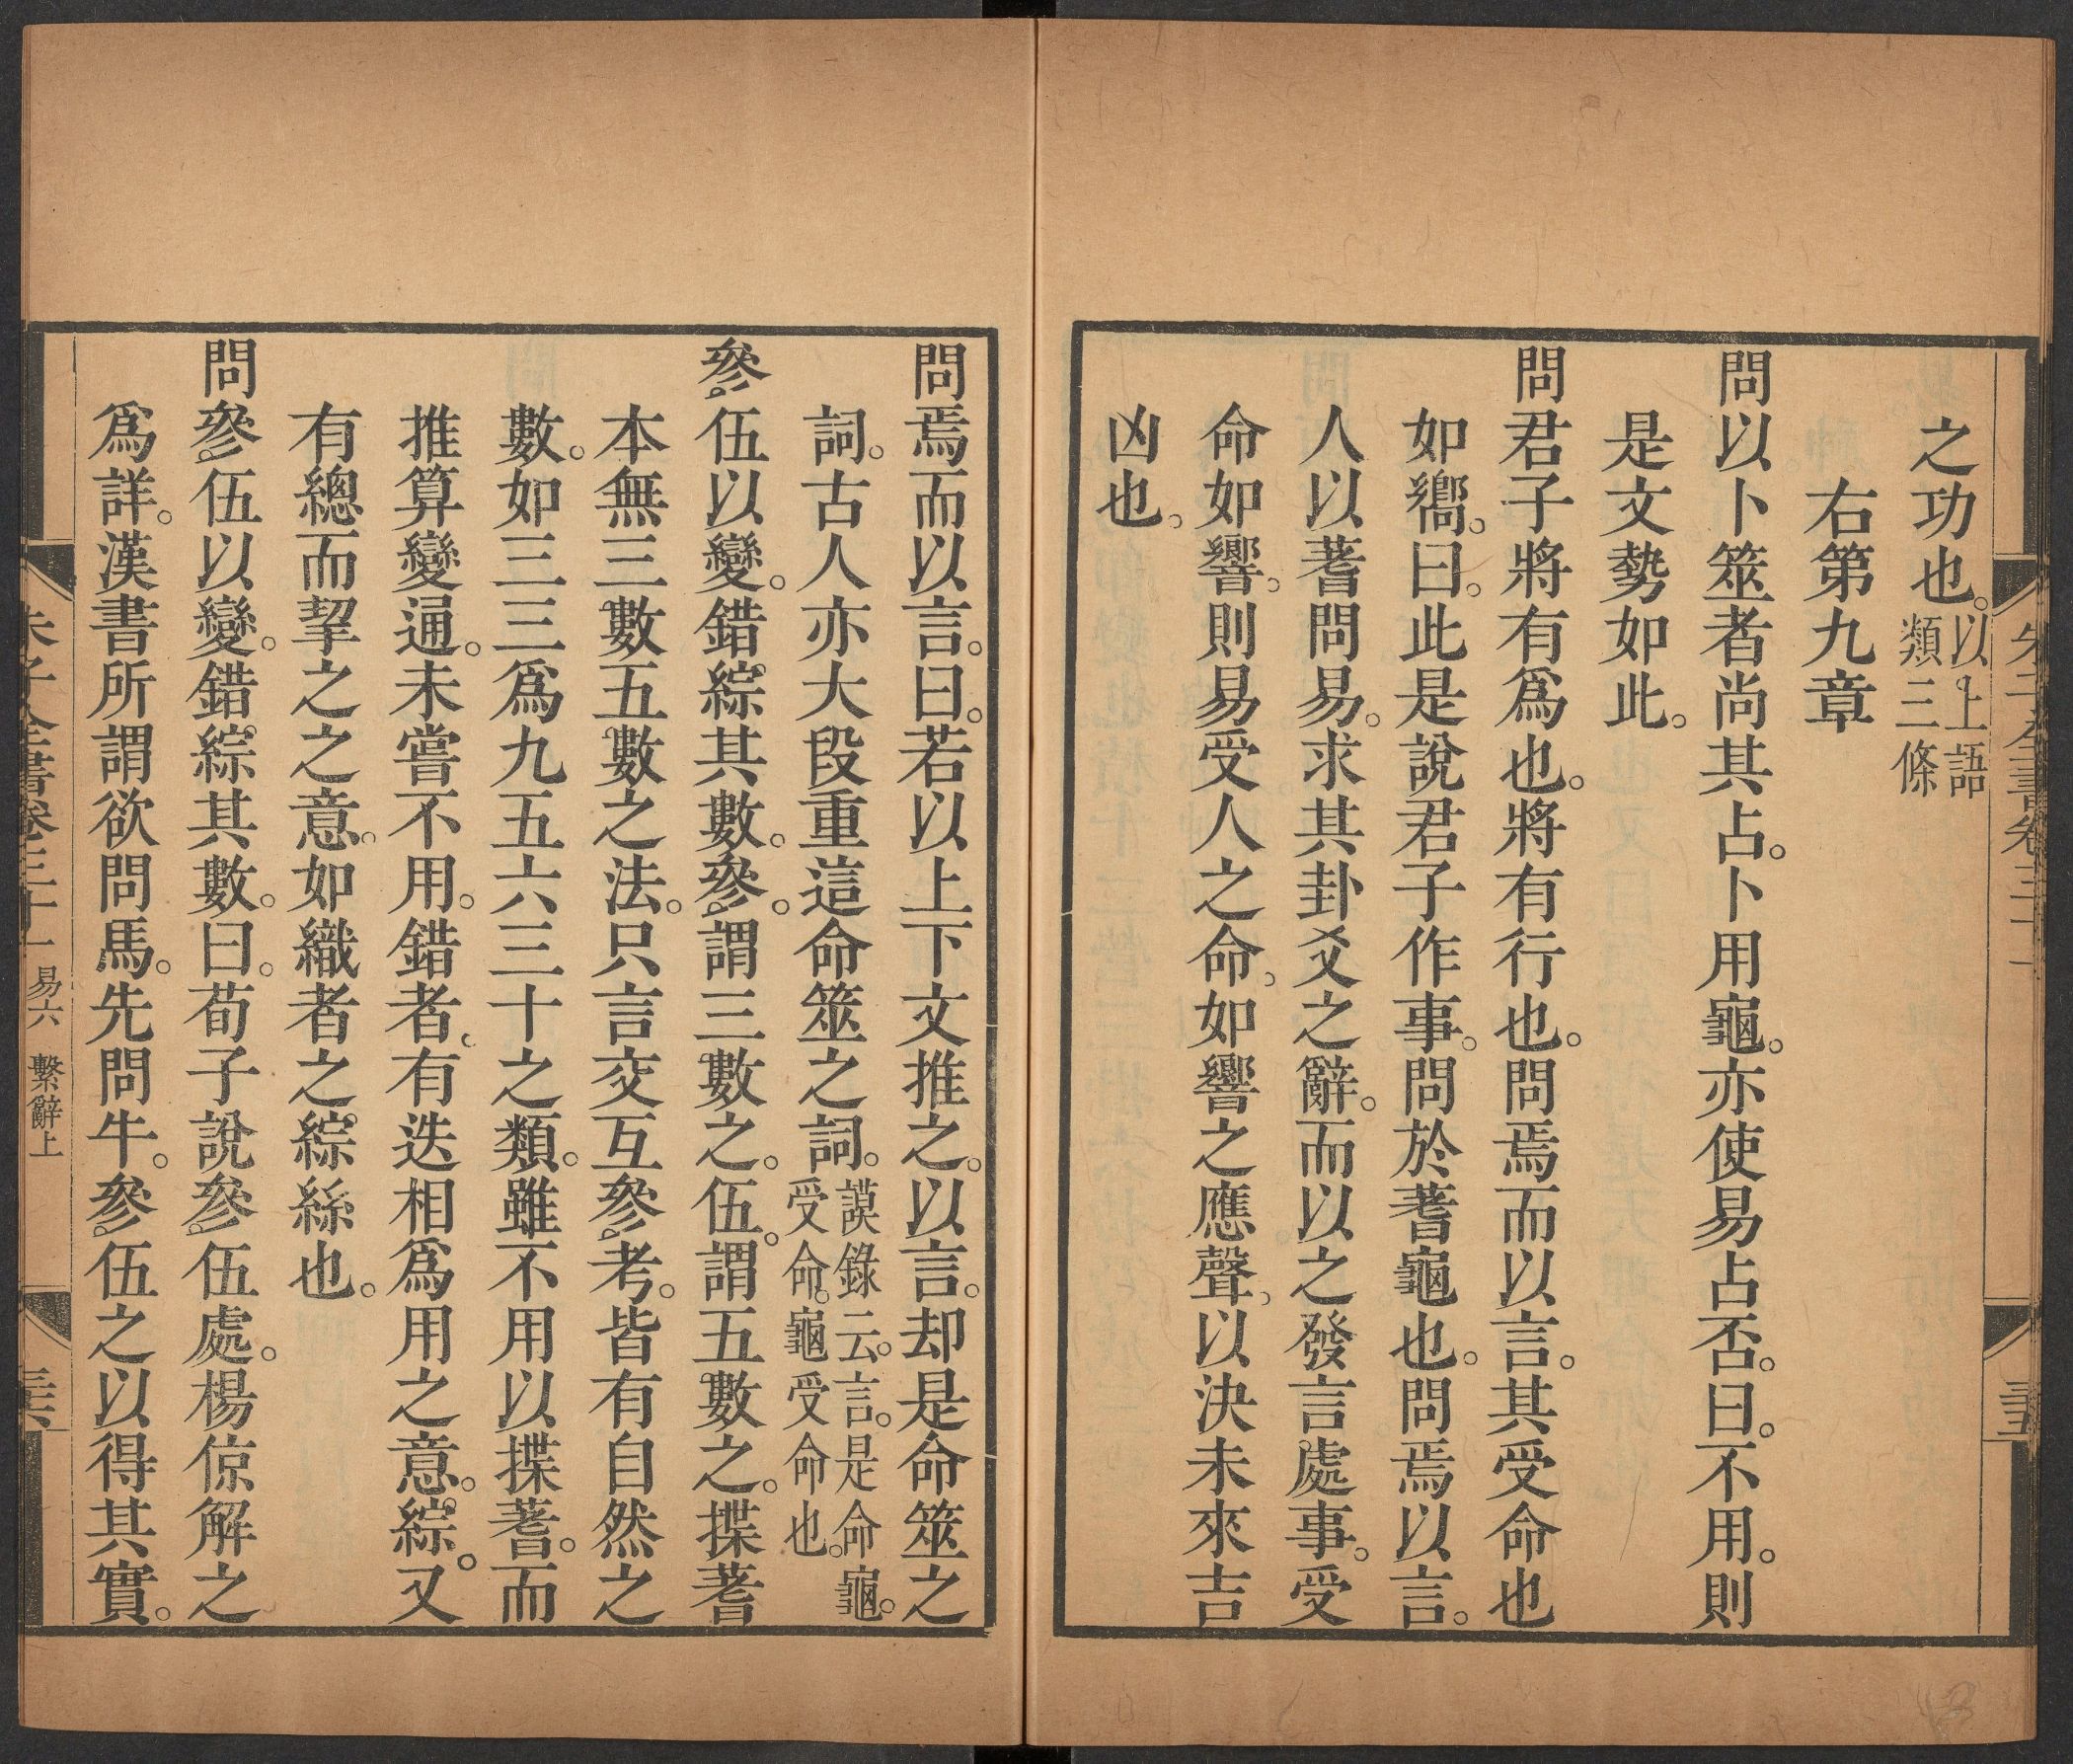 之功也。以上語類三條
右第九章
問以卜筮者尚其占。卜用龜。亦使易占否。曰。不用。則
是文勢如此。
問君子將有爲也。將有行也。問焉而以言。其受命也
如嚮。曰。此是說君子作事。問於蓍龜也。問焉以言。
人以蓍問易。求其卦爻之辭。而以之發言處事。受
命如響。則易受人之命。如響之應聲。以決未來吉
凶也。
問焉而以言。曰。若以上下文推之。以言。却是命筮之
詞。古人亦大段重這命筮之詞。謨錄云。言。是命龜。受命。龜受命也。
參伍以變。錯綜其數。參。謂三數之。伍。謂五數之。揲蓍
本無三數五數之法。只言交互參考。皆有自然之
數。如三三爲九五六三十之類。雖不用以揲蓍。而
推算變通。未嘗不用。錯者。有迭相爲用之意。綜。又
有總而挈之之意。如織者之綜絲也。
問參伍以變。錯綜其數。曰。荀子說參伍處。楊倞解之
爲詳。漢書所謂欲問馬。先問牛。參伍之以得其實。
朱子全書卷三十一 易六 繫辭上